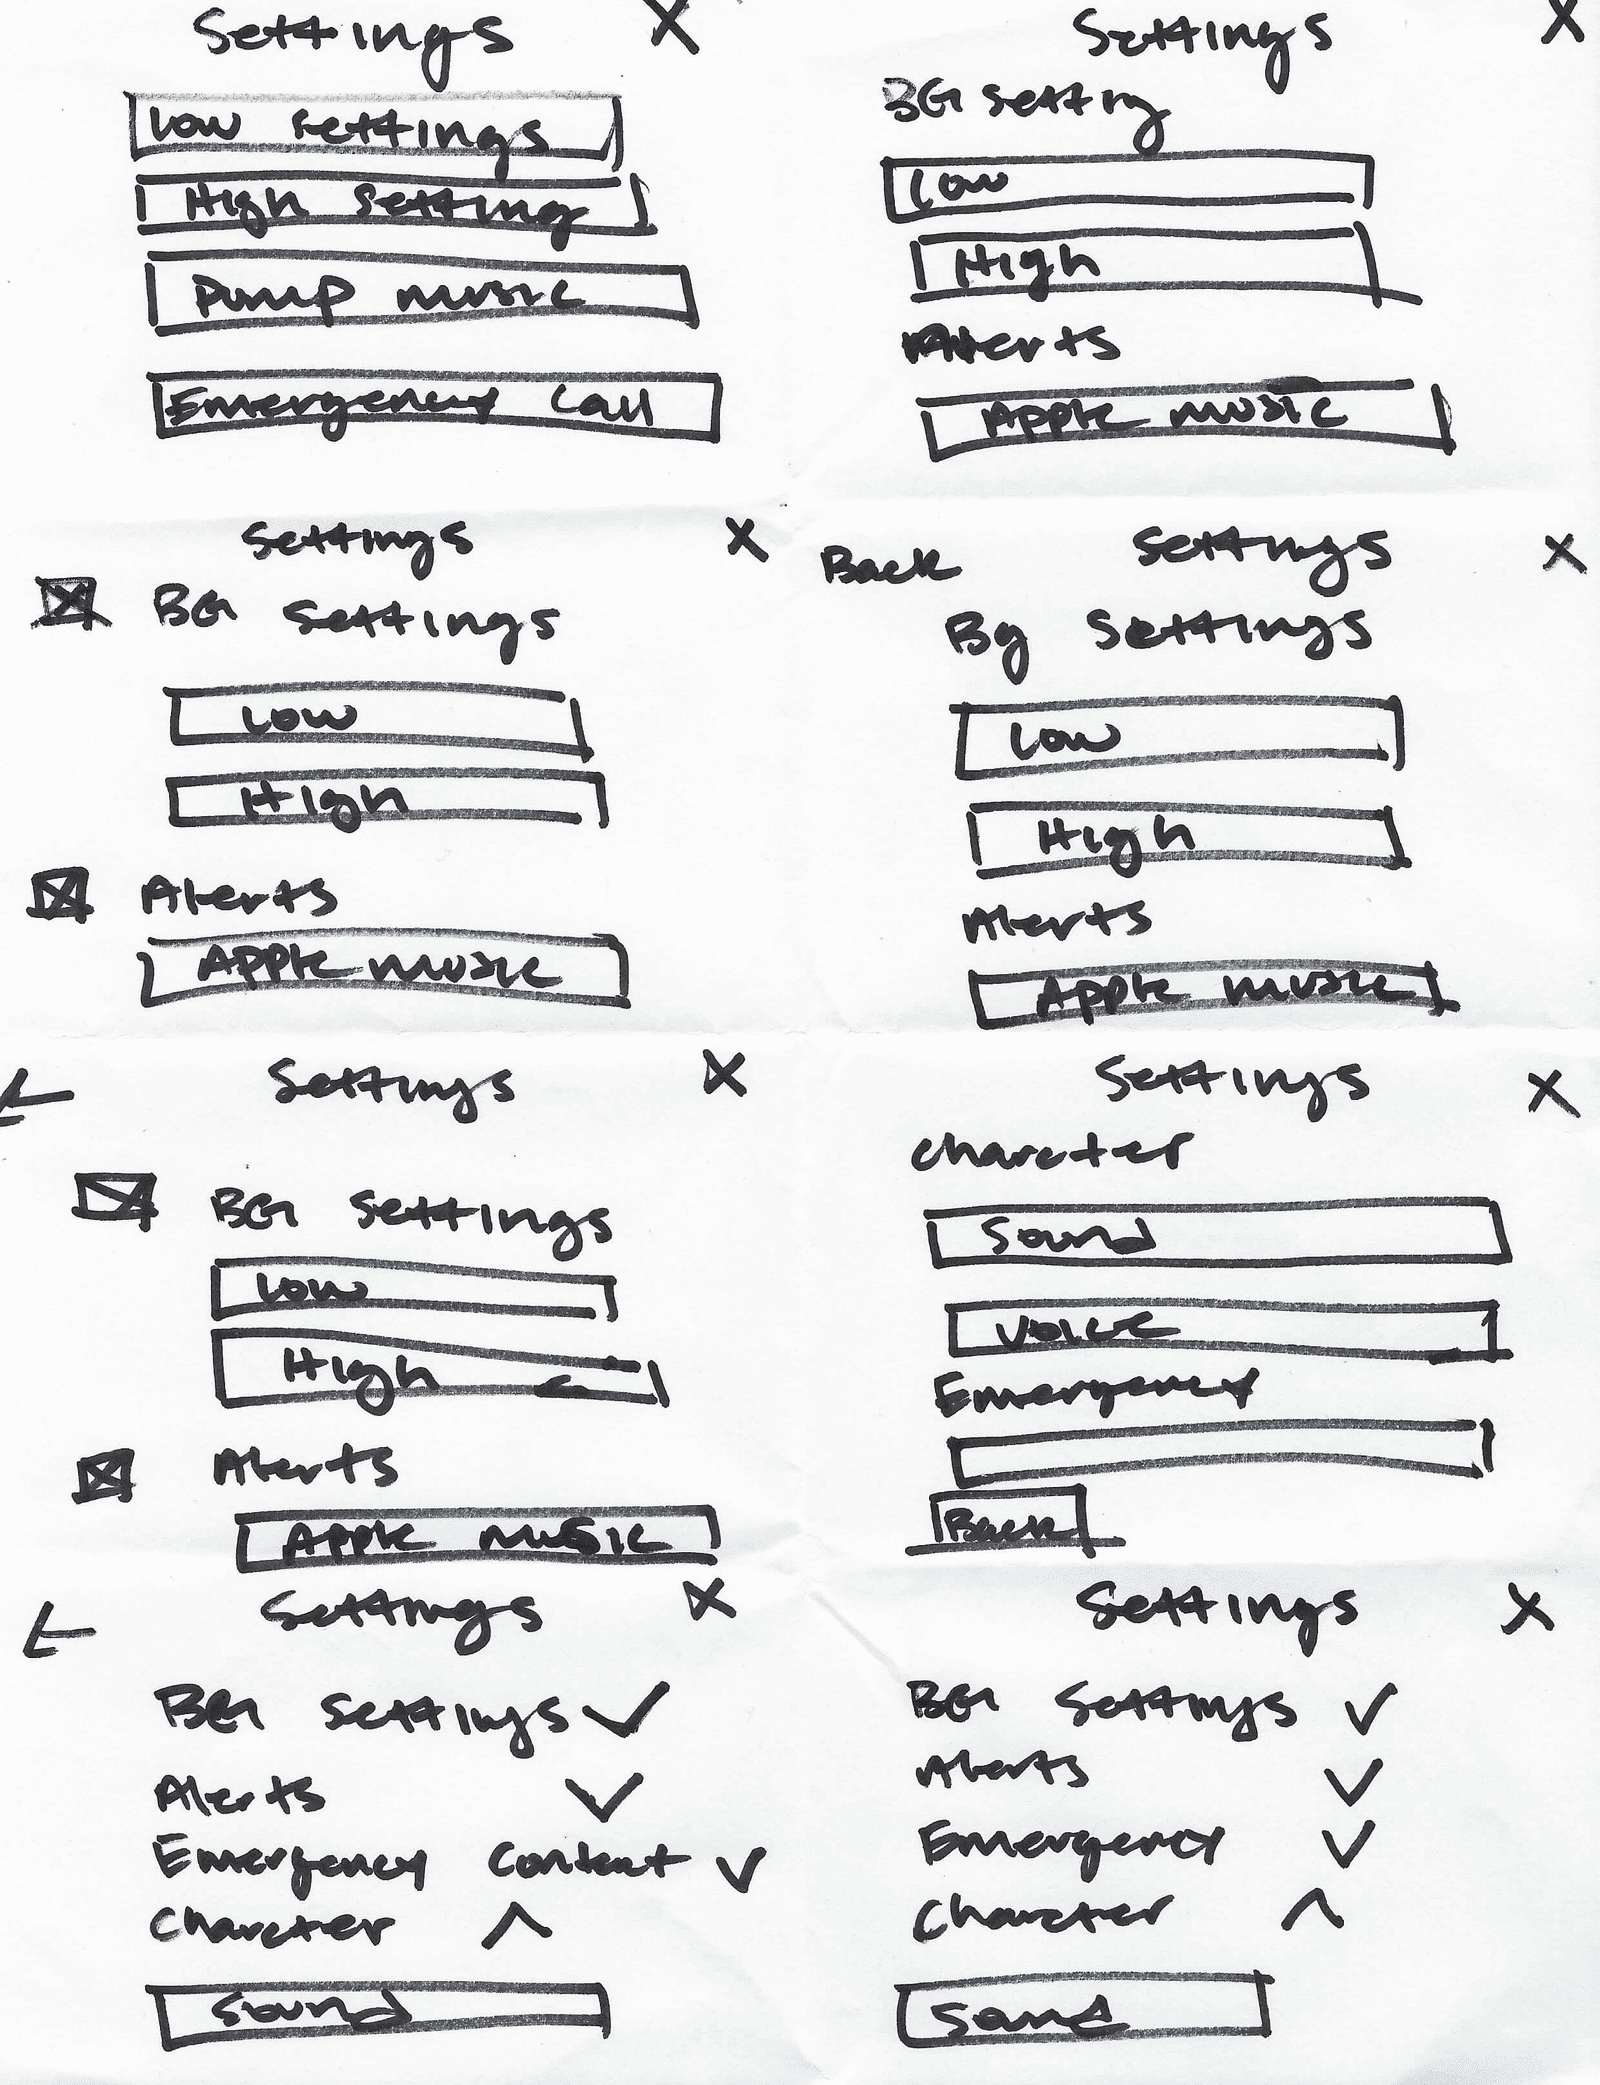 Settings X
Low settings
High Setting
Pump music
Emergency Call
Settings X
BG Setting
Low
High
Alerts
Apple music
Settings X
BG Settings
Low
High
Alerts
Apple music
Back Settings X
Bg Settings
Low
High
Alerts
Apple music
Settings X
BG Settings
Low
High
Alerts
Apple music
Settings X
Character
Sound
Voice
Emergency
Back
Settings X
BG Settings
Alerts
Emergency Contact
Character
Sound
Settings X
BG Settings
Alerts
Emergency
Character
Sound